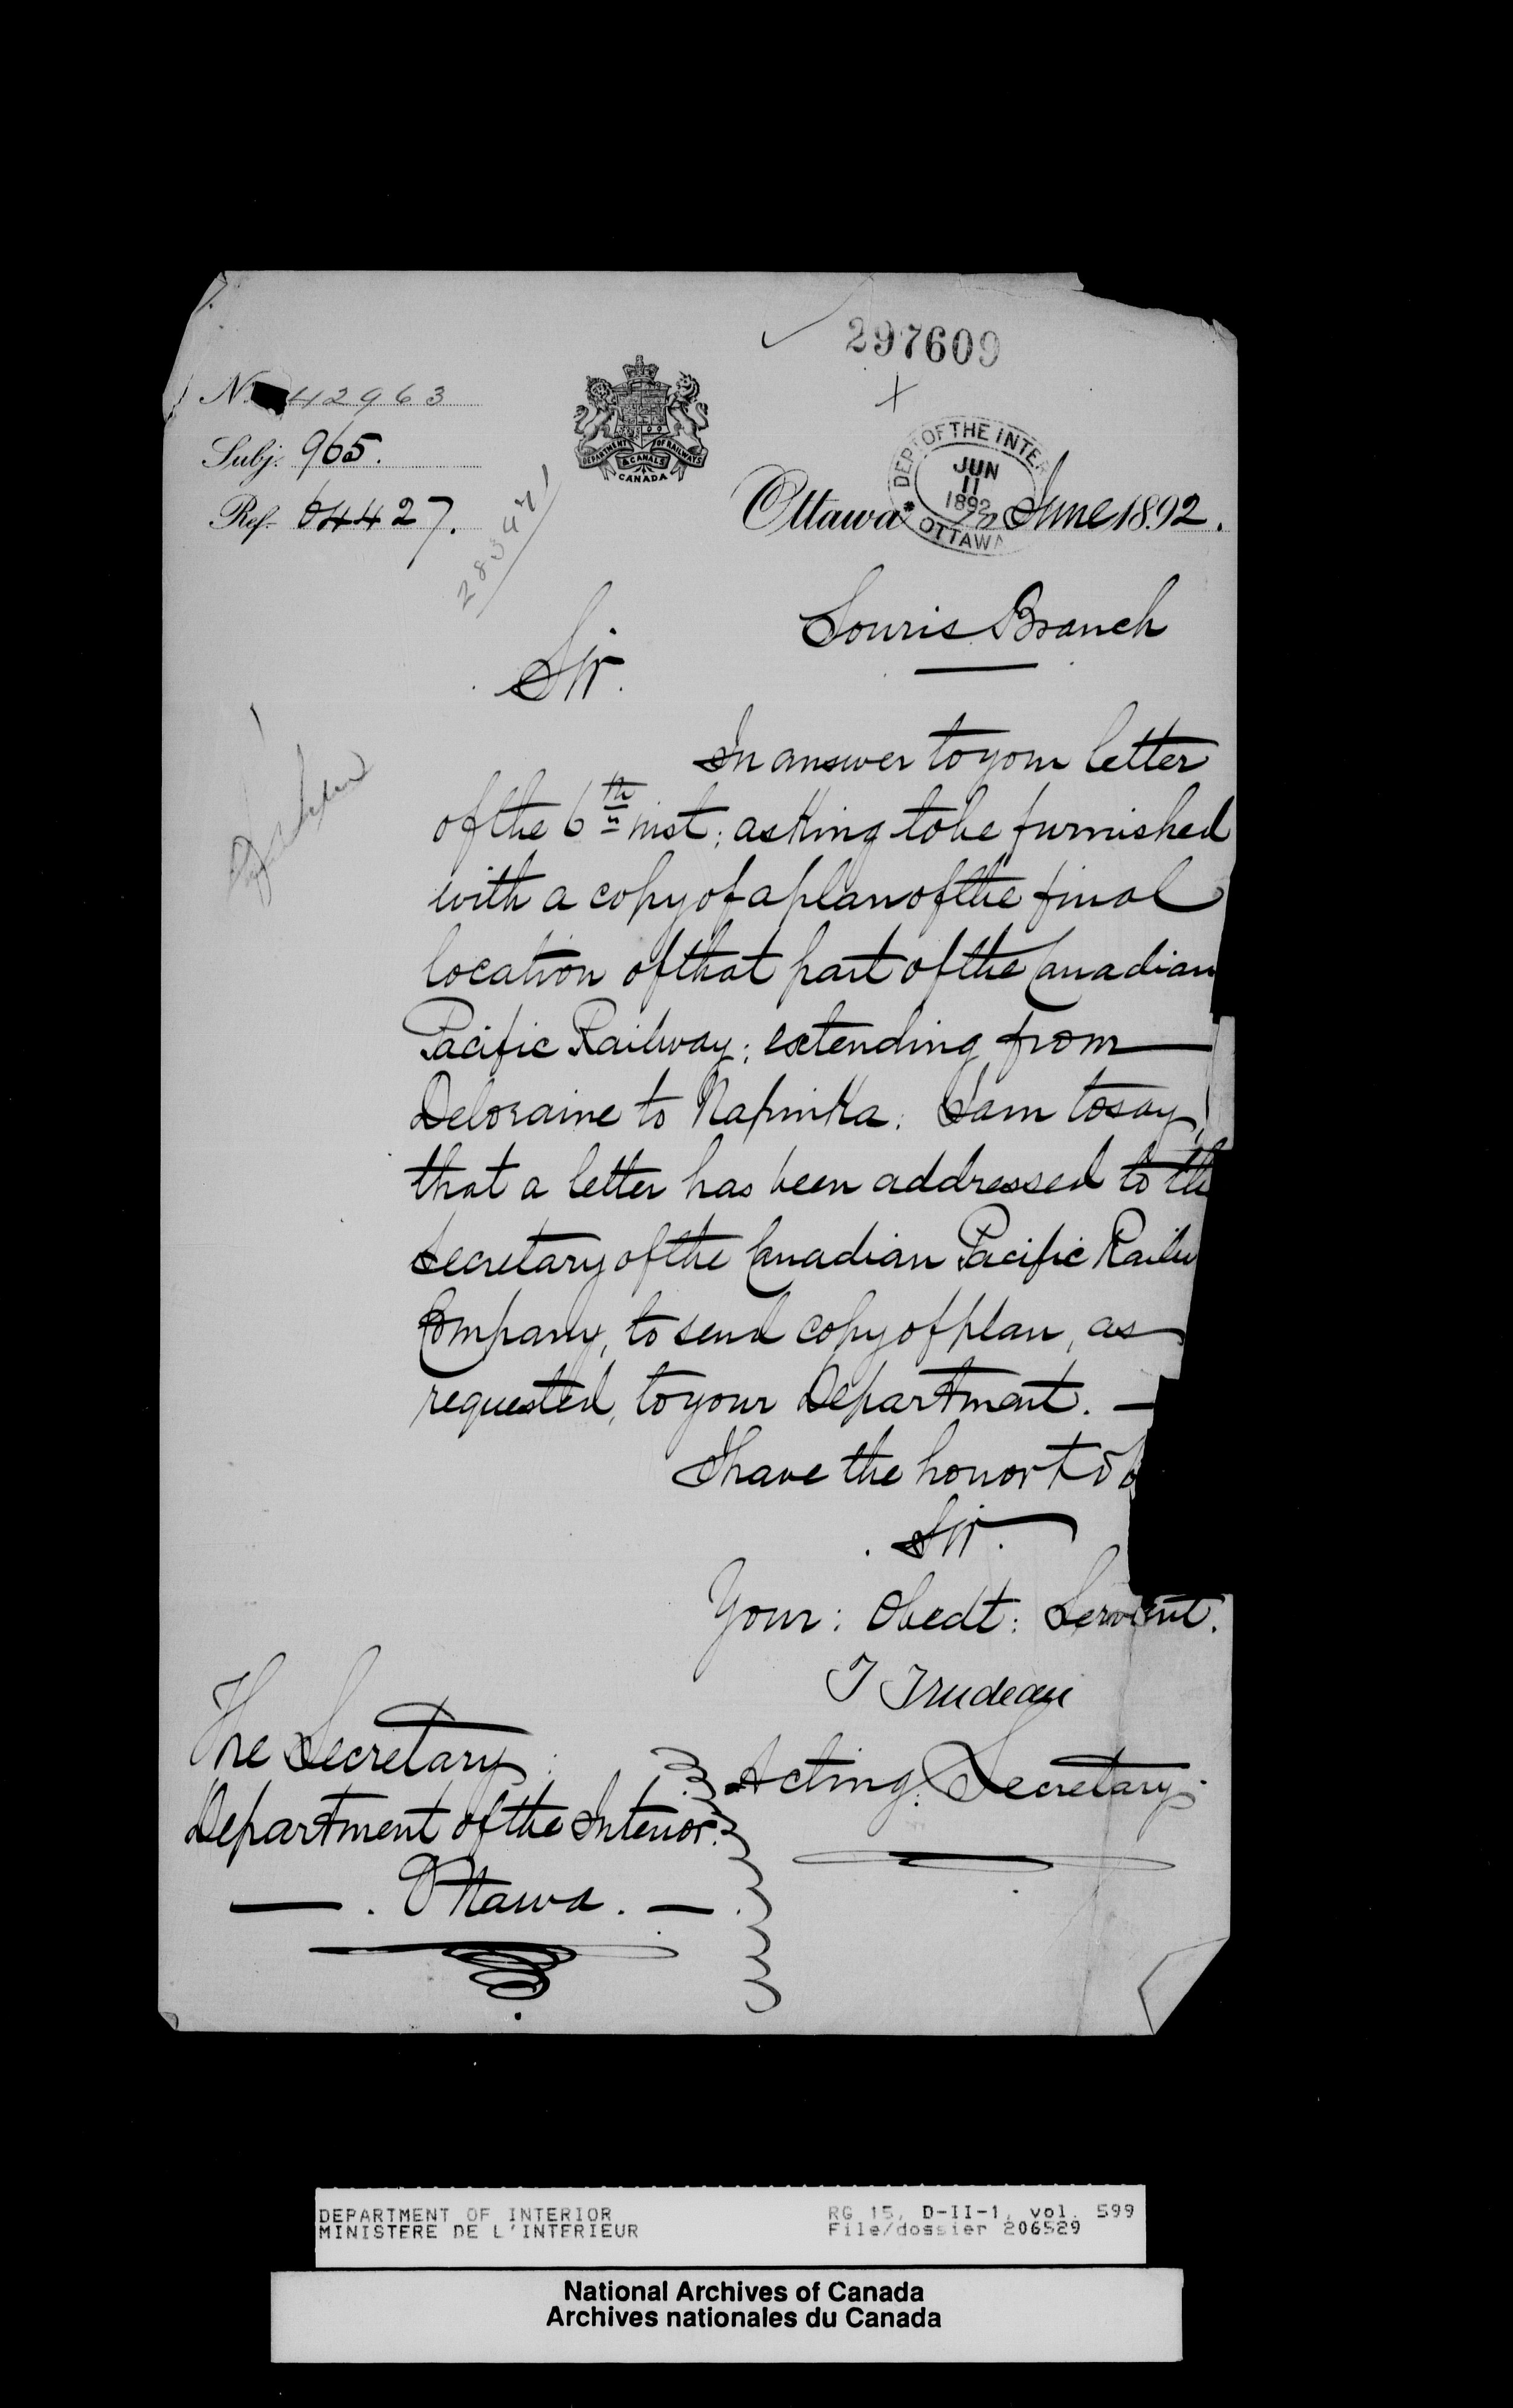 297609
No. 42963
Subj. 965.
Ref. 64427.
DEPARTMENT OF RAILWAYS
& CANALS
CANADA
DEPT OF THE INTER
JUN
11
1892
OTTAWA
Ottawa June 1892.
Souris Branch
Sir.
In answer to your letter
of the 6th inst: asking to be furnished
with a copy of a plan of the final
location of that part of the Canadian
Pacific Railway; extending from
Deloraine to Napinka: I am to say,
that a letter has been addressed to the
Secretary of the Canadian Pacific Railw
Company, to send copy of plan, as
requested, to your Department. —
I have the honor to b
Sir.
Your: Obedt: Servant.
T Trudeau
Acting: Secretary.
The Secretary:
Department of the Interior.
— . Ottawa . —
DEPARTMENT OF INTERIOR
MINISTERE DE L'INTERIEUR
RG 15, D-II-1, vol. 599
File/dossier 206529
National Archives of Canada
Archives nationales du Canada